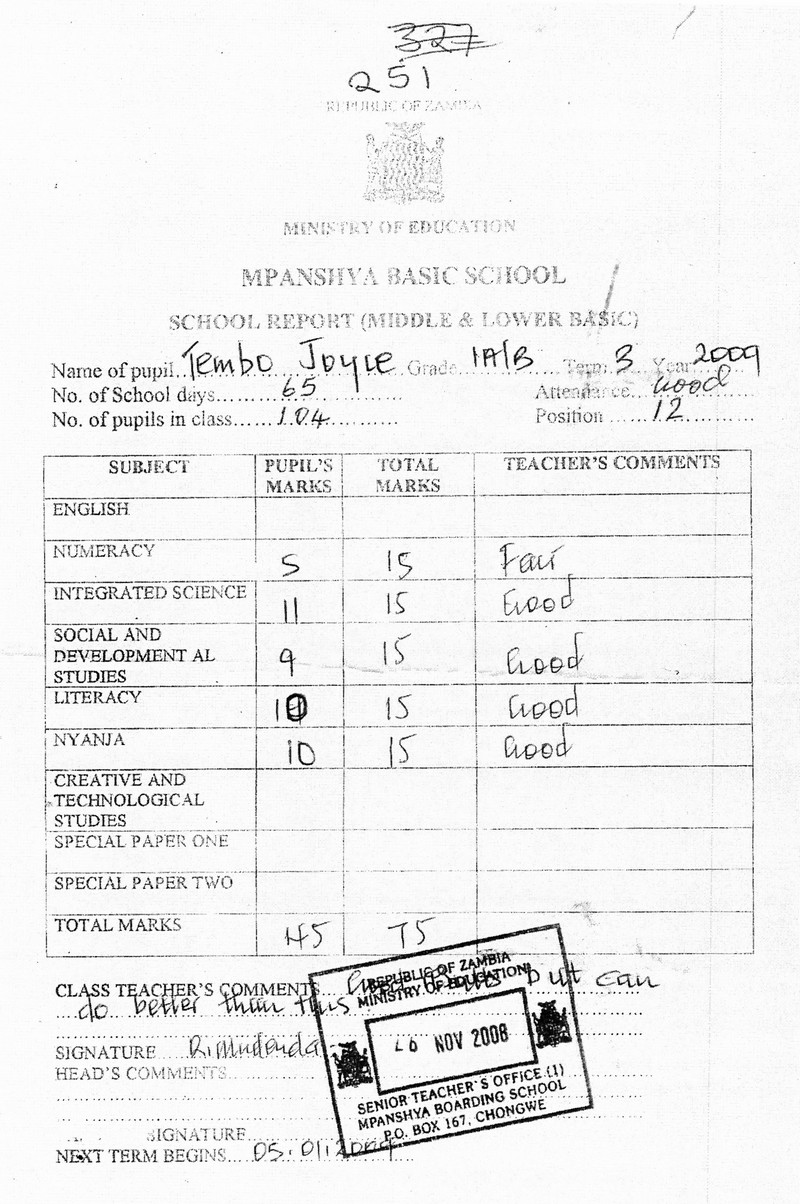 327
251
REPUBLIC OF ZAMBIA
MINISTRY OF EDUCATION
MPANSHYA BASIC SCHOOL
SCHOOL REPORT (MIDDLE & LOWER BASIC)
Name of pupil..Tembo Joyce Grade..1A/B Term 3 Year 2009
No. of School days........65 Attendance...Good
No. of pupils in class.....104 Position .....12
SUBJECT PUPIL'S MARKS TOTAL MARKS TEACHER'S COMMENTS
ENGLISH
NUMERACY 5 15 Fair
INTEGRATED SCIENCE 11 15 Good
SOCIAL AND DEVELOPMENT AL STUDIES 9 15 Good
LITERACY 10 15 Good
NYANJA 10 15 Good
CREATIVE AND TECHNOLOGICAL STUDIES
SPECIAL PAPER ONE
SPECIAL PAPER TWO
TOTAL MARKS 45 75
CLASS TEACHER'S COMMENTS but can
do better than this
SIGNATURE
HEAD'S COMMENTS
SIGNATURE
NEXT TERM BEGINS...05.01.2009
REPUBLIC OF ZAMBIA
MINISTRY OF EDUCATION
NOV 2008
SENIOR TEACHER'S OFFICE (1)
MPANSHYA BOARDING SCHOOL
P.O. BOX 167, CHONGWE